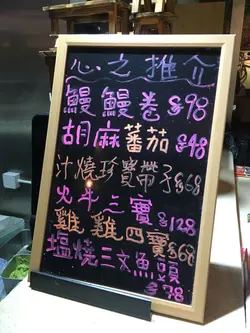 心之推介
鰻鰻卷 $98
胡麻蕃茄 $48
汁燒珍寶帶子 $68
火斗三寶 $128
雞雞四寶 $68
塩燒三文魚頭
$78